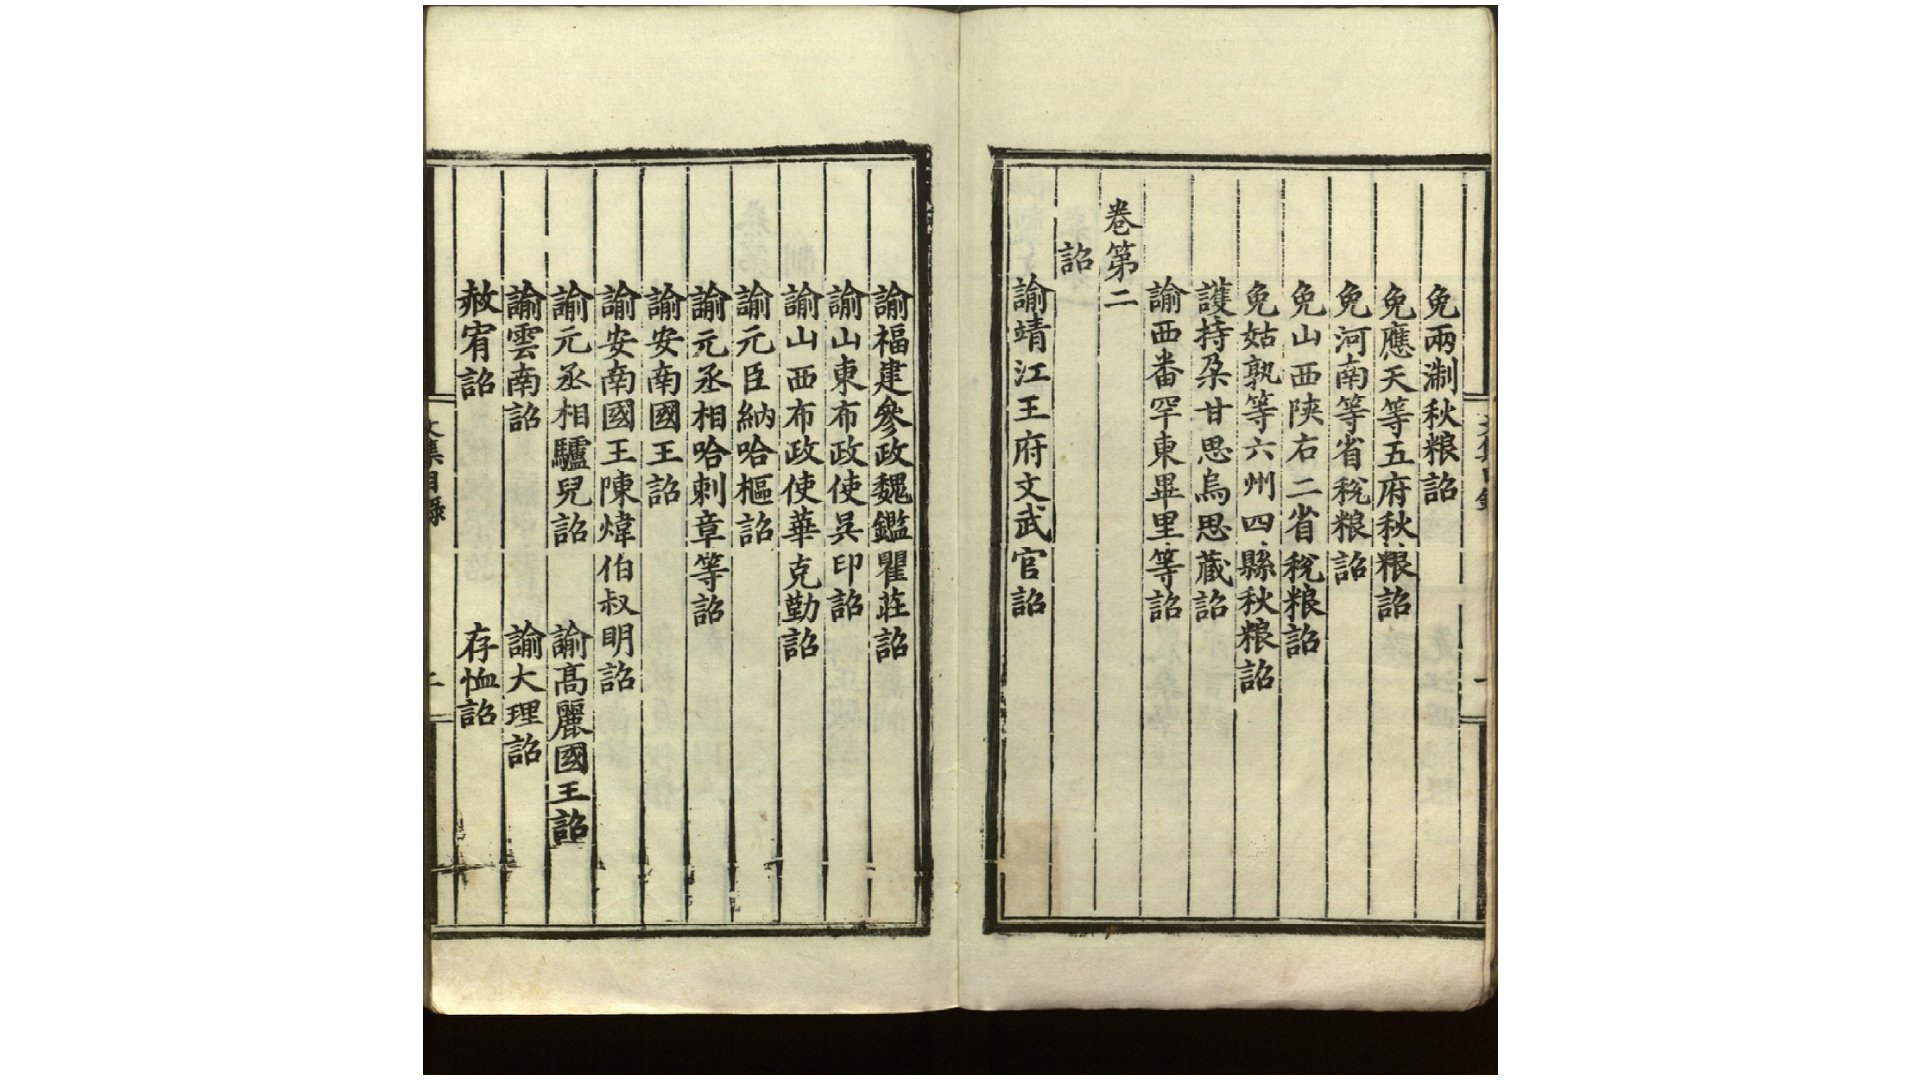 免兩淛秋粮詔
免應天等五府秋粮詔
免河南等省稅粮詔
免山西陝右二省稅粮詔
免姑孰等六州四縣秋粮詔
護持朶甘思烏思藏詔
諭西番罕東畢里等詔
卷第二
詔
諭靖江王府文武官詔
諭福建參政魏鑑瞿莊詔
諭山東布政使吳印詔
諭山西布政使華克勤詔
諭元臣納哈樞詔
諭元丞相哈剌章等詔
諭安南國王詔
諭安南國王陳煒伯叔明詔
諭元丞相驢兒詔 諭高麗國王詔
諭雲南詔 諭大理詔
赦宥詔 存恤詔
文集目錄
二